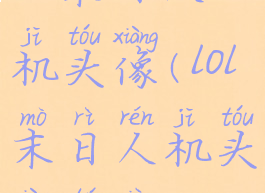 jī tóu xiàng
机头像(lol
mò rì rén jī tóu
末日人机头